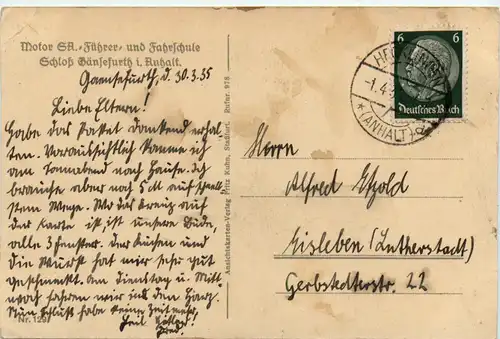 Motor SA.-Führer- und Fahrschule
Schloß Gänsefurth i. Anhalt.
Gaensefurth, d. 30.3.35
Liebe Eltern!
Habe das Paket dankend erhal-
ten. Voraussichtlich komme ich
am Sonnabend nach Hause. Ich
brauche aber noch 5 M auf schnell-
stem Wege. Wo das Kreuz auf
der Karte ist, ist unsere Bude,
alle 3 Fenster. Der Kuchen und
die Wurst hat mir sehr gut
geschmeckt. Am Dienstag u. Mitt-
woch fahren wir in den Harz.
Nun Schluß habe keine Zeit mehr.
Heil Hitler!
Nr. 129
Ansichtskarten-Verlag Fritz Kuhn, Staßfurt. Rufnr. 978
6 6
Deutsches Reich
-1.4.
(ANHALT)
Herrn
Alfred Etzold
Eisleben (Lutherstadt)
Gerbstedterstr. 22